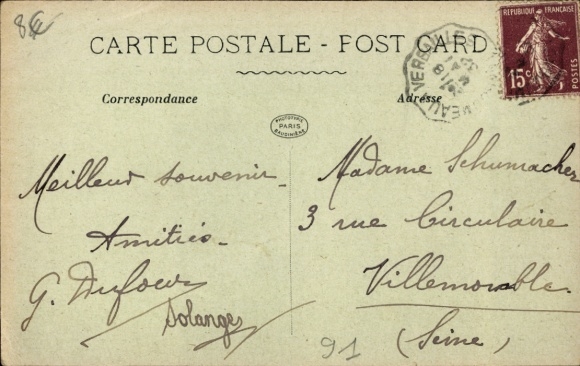 8€
CARTE POSTALE - POST CARD
REPUBLIQUE FRANÇAISE
15c
POSTES
Correspondance
Adresse
PARIS
Meilleur souvenir
Amitiés
G. Dufour
Solange
Madame Schumacher
3 rue Circulaire
Villemomble
(Seine)
91